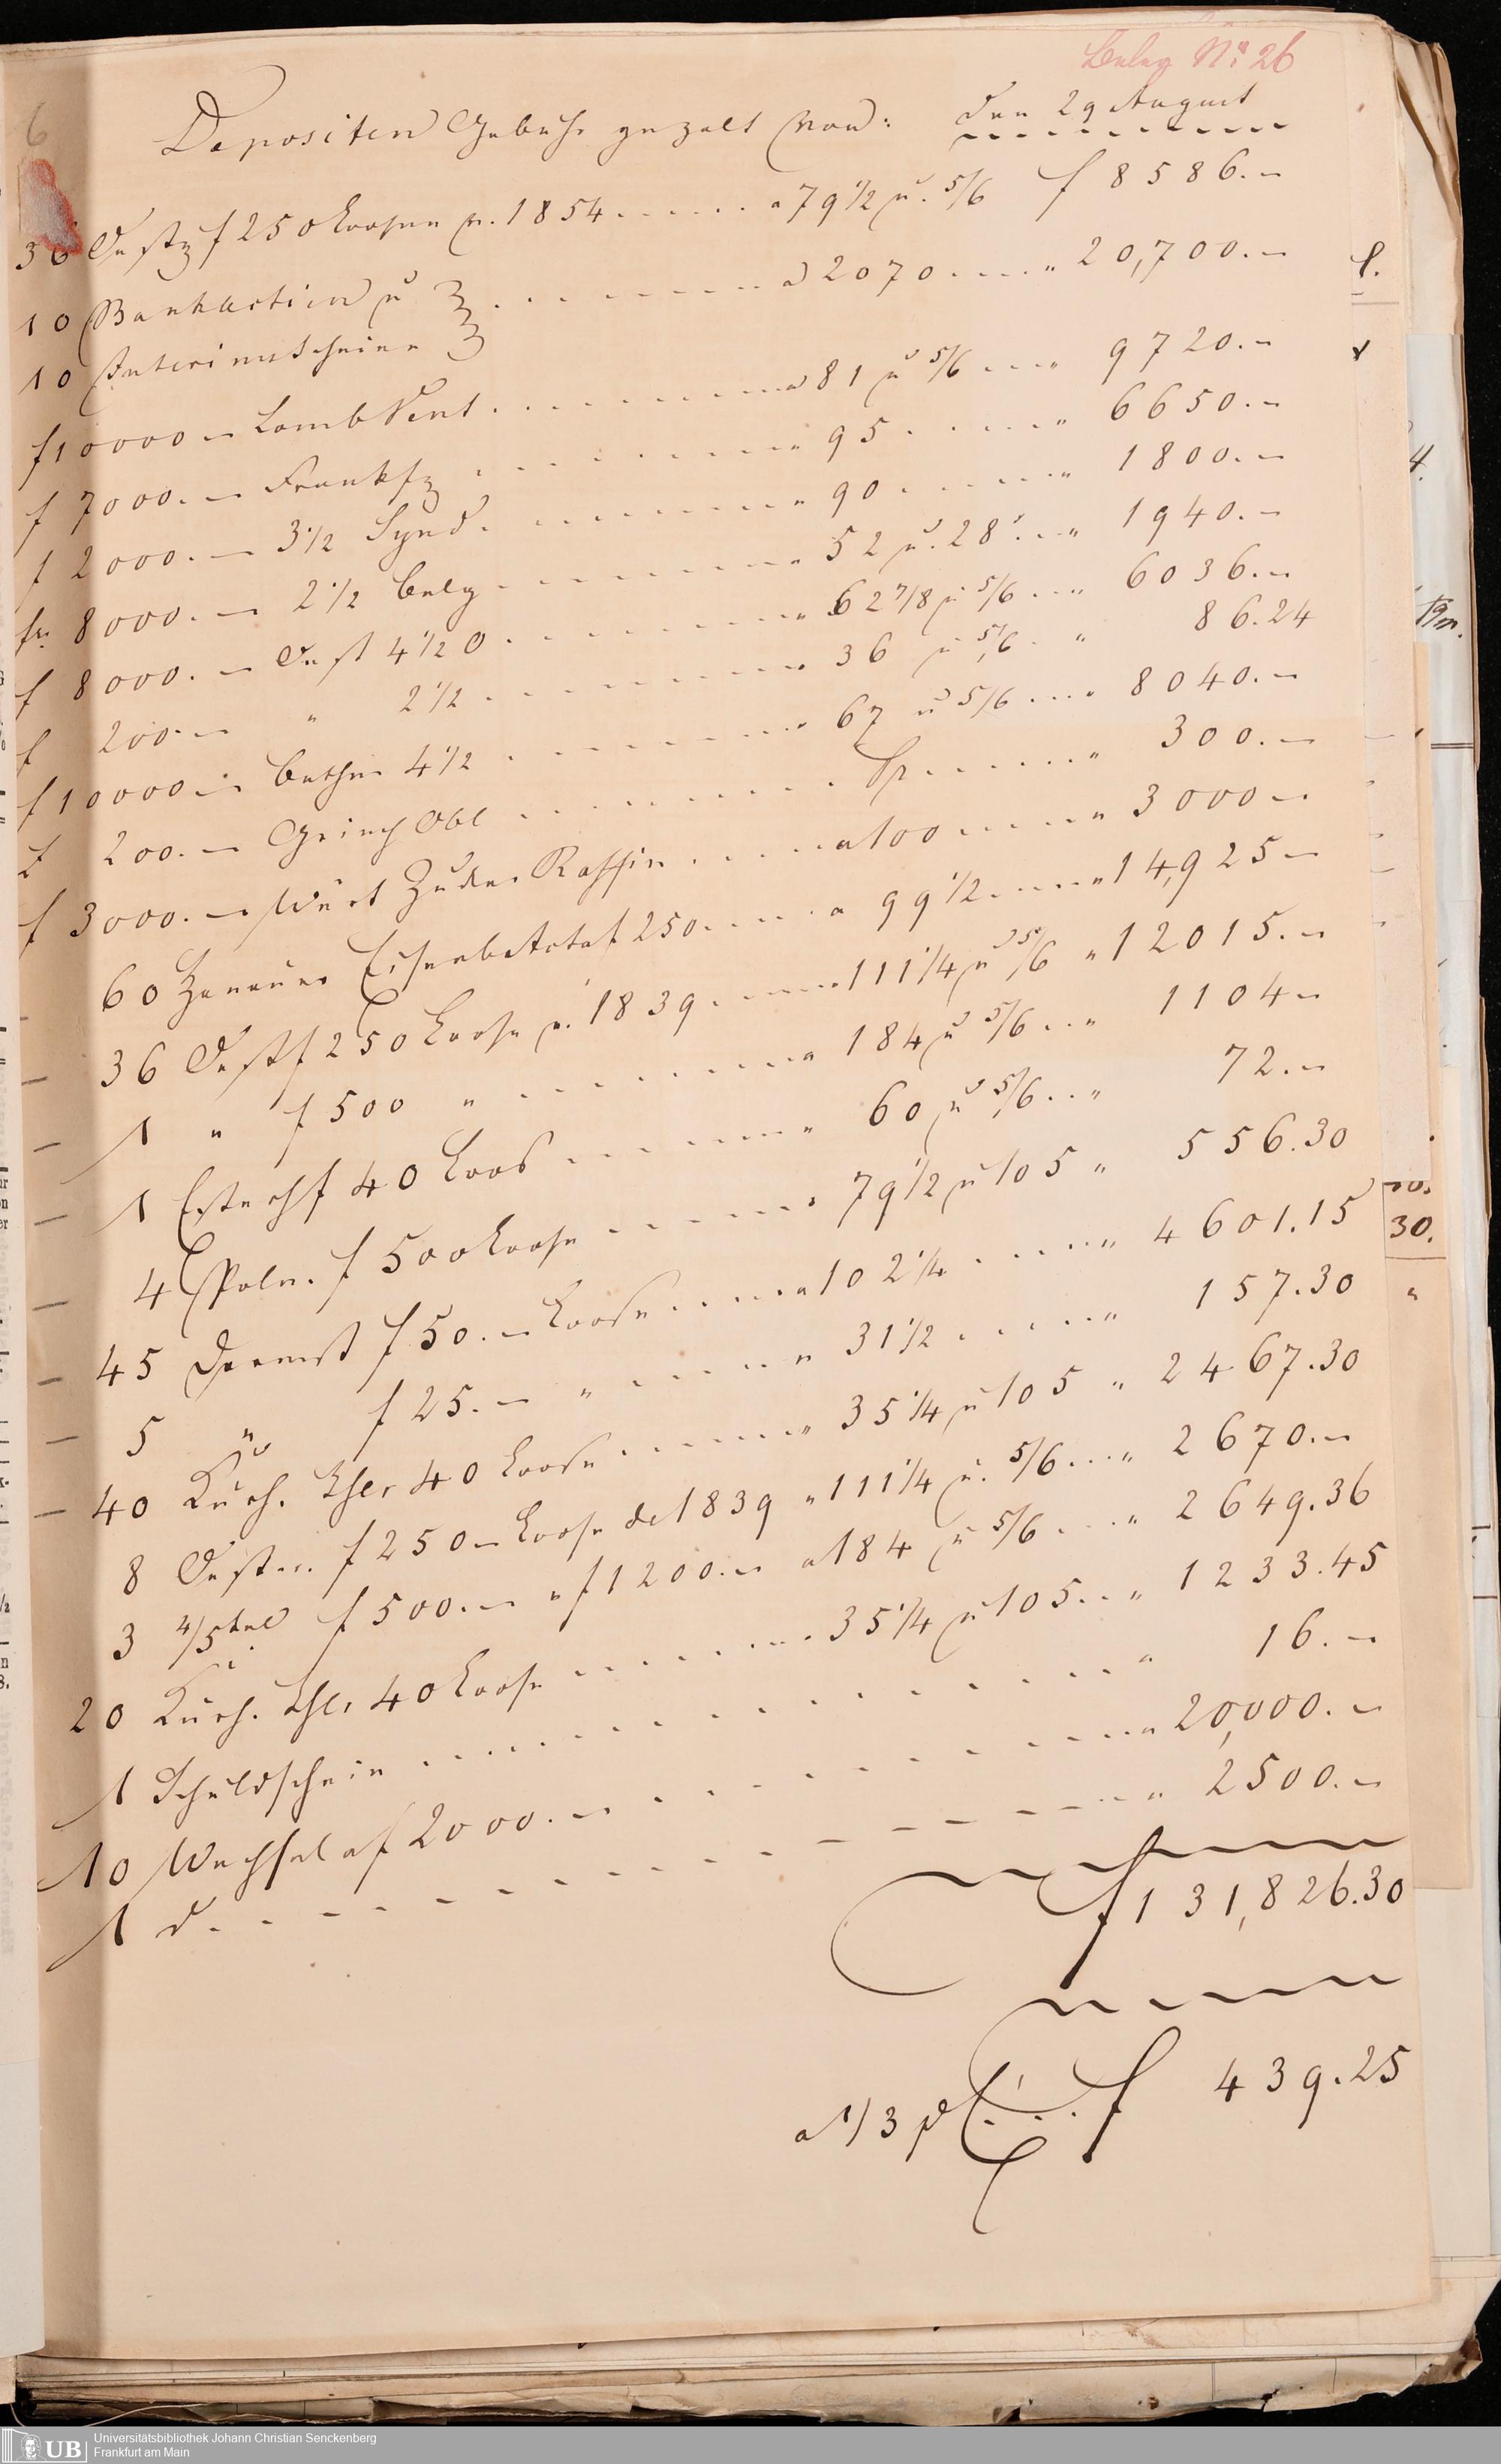 Beleg No. 26
6
Depositen Gebühr gezalt von: den 29 August
36 Oestr f 250 Loosen v. 1854 ...... a 79 1/2 u. 5/6 f 8586.—
10 Bankactien u
10 Interimsscheine ......... a 2070 .... " 20,700.—
f 10000.— Lomb Vent .......... a 81 u 5/6 ... " 9720.—
f 7000.— Frankf ......... " 95 ..... " 6650.—
f 2000.— 3 1/2 Synd. ........ " 90 ..... " 1800.—
fr. 8000.— 2 1/2 belg ......... " 52 u. 28 ... " 1940.—
f 8000.— Oest 4 1/2 O ........ " 62 7/8 u 5/6 ... " 6036.—
f 200.— " 2 1/2 ......... " 36 u 5/6 . " 86.24
f 10000.— bethm 4 1/2 ........ " 67 u 5/6 ... " 8040.—
f 200.— Griech Obl ......... ..... " 300.—
f 3000.— Würt Zucker Raffin ..... a 100 ..... " 3000.—
60 Hanauer Eisenb Act a f 250 .... a 99 1/2 .... " 14,925.—
36 Oest f 250 Loose v. 1839 ..... " 111 1/4 u 5/6 " 12015.—
1 " f 500 " ......... " 184 u 5/6 .. " 1104.—
1 Esterh f 40 Loos ....... " 60 u 5/6 .. " 72.—
4 Poln. f 500 Loose ...... " 79 1/2 u 105 " 556.30
45 Darmst f 50.— Loose ..... a 102 1/4 ..... " 4601.15
5 " f 25.— " ..... " 31 1/2 ..... " 157.30
40 Kurh. Thlr 40 Loose ...... " 35 1/4 u 105 " 2467.30
8 Oestr. f 250.— Loose de 1839 " 111 1/4 u. 5/6 ... " 2670.—
3 4/5tel f 500.— " f 1200.— a 184 u 5/6 ... " 2649.36
20 Kurh. Thlr 40 Loose ....... " 35 1/4 u 105 .. " 1233.45
1 Schuldschein ............ " 16.—
10 Wechsel a f 2000.— ........ " 20,000.—
1 d. ............ " 2500.—
f 131,826.30
a 1/3 p ... f 439.25
30.
Universitätsbibliothek Johann Christian Senckenberg
Frankfurt am Main
UB